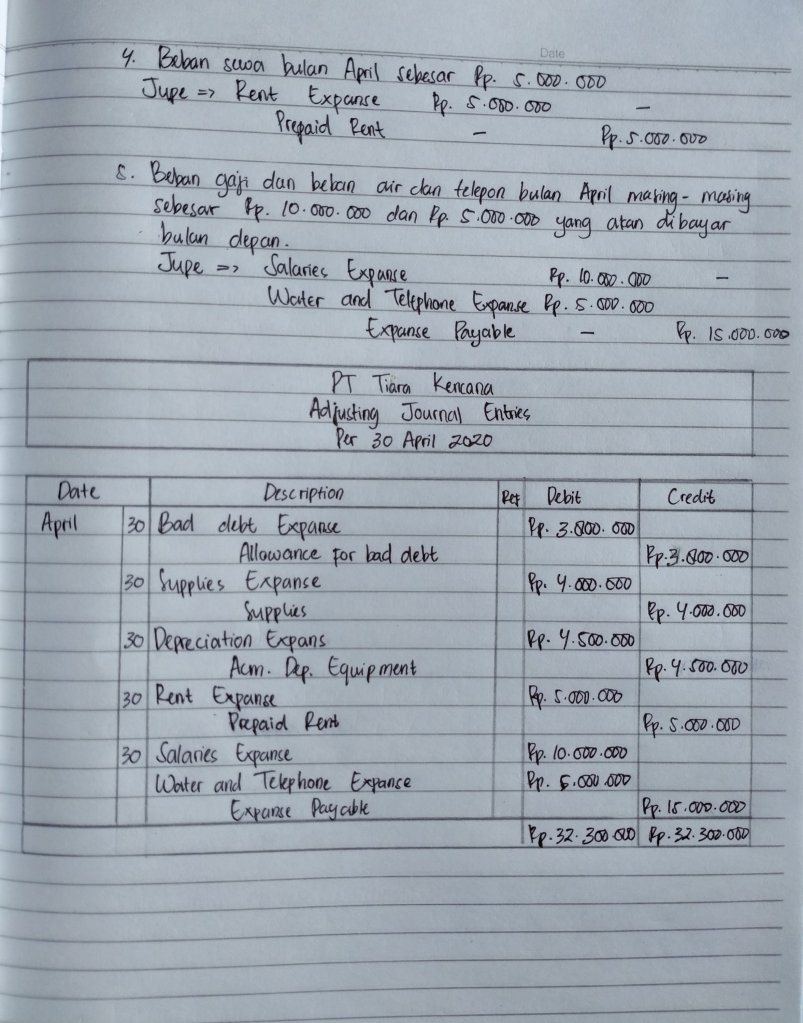 Date
4. Beban sewa bulan April sebesar Rp. 5.000.000
Jupe => Rent Expanse Rp. 5.000.000 -
Prepaid Rent - Rp. 5.000.000
5. Beban gaji dan beban air dan telepon bulan April masing-masing
sebesar Rp. 10.000.000 dan Rp. 5.000.000 yang akan dibayar
bulan depan.
Jupe => Salaries Expanse Rp. 10.000.000 -
Water and Telephone Expanse Rp. 5.000.000
Expanse Payable - Rp. 15.000.000
PT Tiara Kencana
Adjusting Journal Entries
Per 30 April 2020
Date Description Ref Debit Credit
April 30 Bad debt Expanse Rp. 3.800.000
Allowance for bad debt Rp. 3.800.000
30 Supplies Expanse Rp. 4.000.000
Supplies Rp. 4.000.000
30 Depreciation Expans Rp. 4.500.000
Acm. Dep. Equipment Rp. 4.500.000
30 Rent Expanse Rp. 5.000.000
Prepaid Rent Rp. 5.000.000
30 Salaries Expanse Rp. 10.000.000
Water and Telephone Expance Rp. 5.000.000
Expanse Payable Rp. 15.000.000
Rp. 32.300.000 Rp. 32.300.000